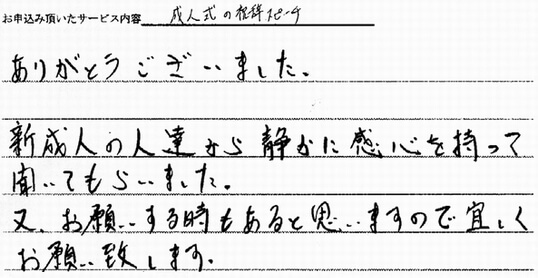 お申込み頂いたサービス内容 成人式の祝辞スピーチ
ありがとうございました。
新成人の人達から静かに感心を持って
聞いてもらいました。
又、お願いする時もあると思いますので宜しく
お願い致します。